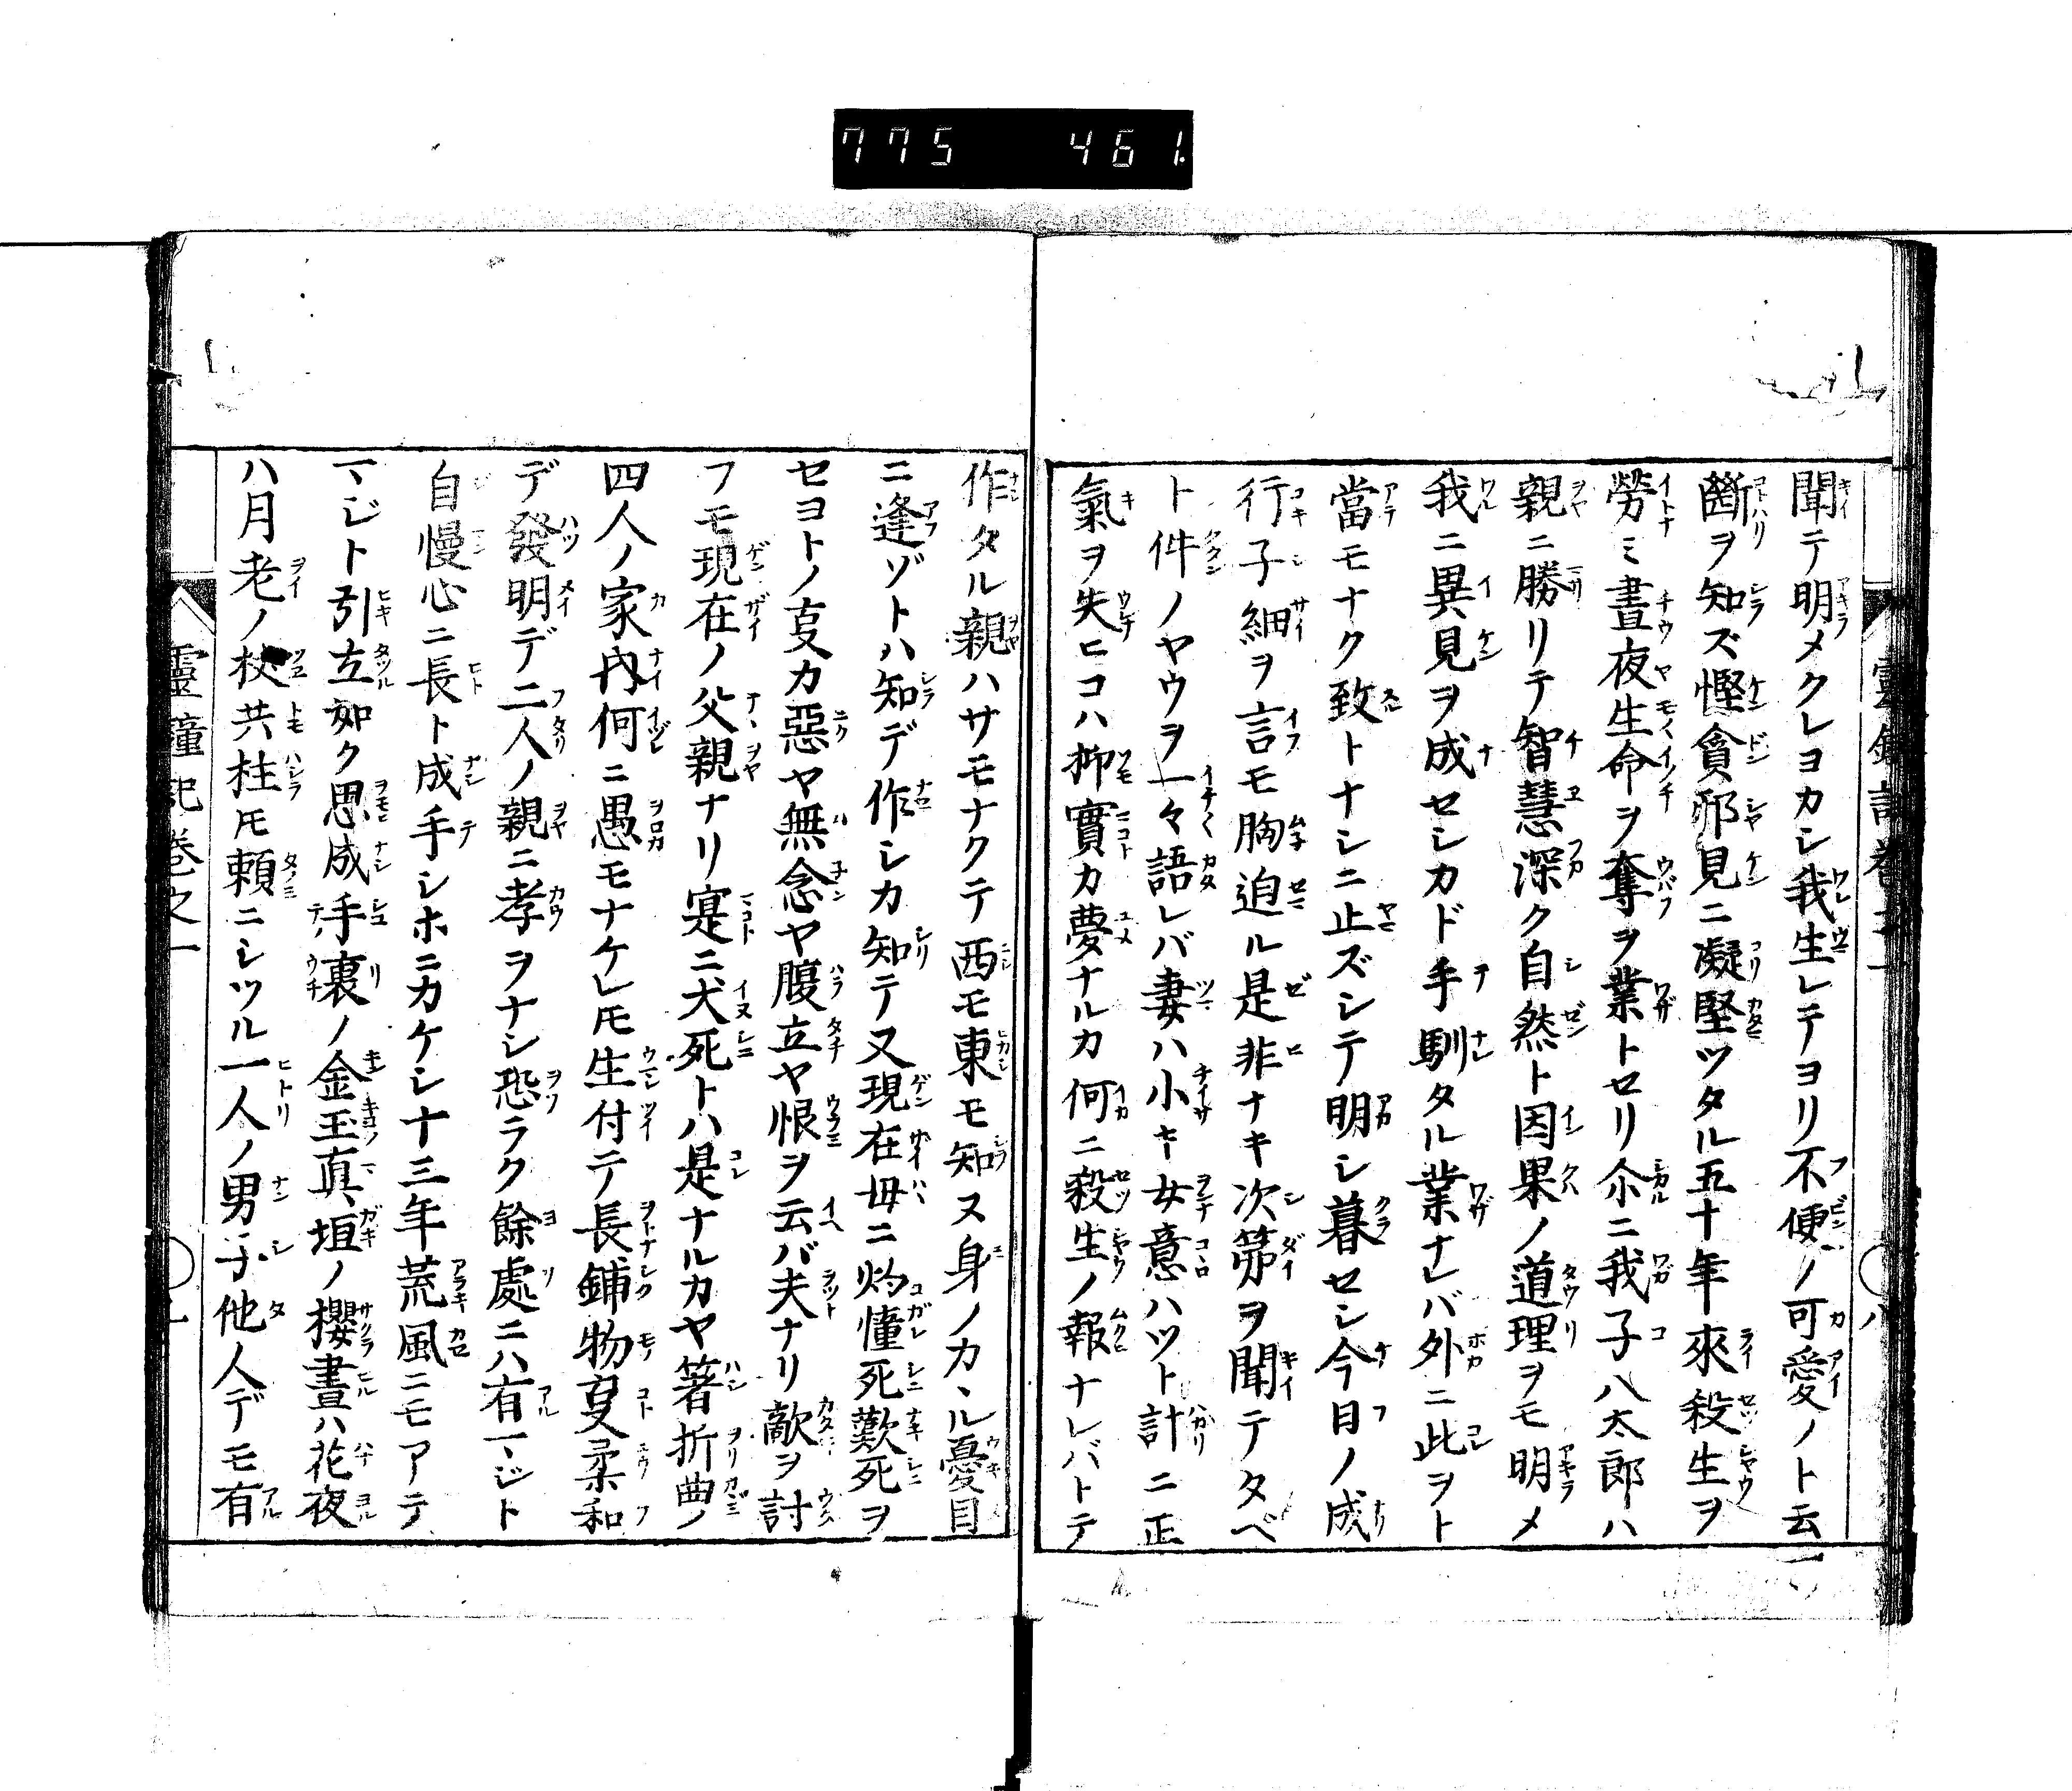 775 461
聞テ明メクレヨカシ我生レテヨリ不便ノ可愛ノト云
斷ヲ知ズ慳貪邪見ニ凝堅ツタル五十年來殺生ヲ
勞ミ晝夜生命ヲ奪ヲ業トセリ尒ニ我子八太郎ハ
親ニ勝リテ智慧深ク自然ト因果ノ道理ヲモ明メ
我ニ異見ヲ成セシカド手馴タル業ナレバ外ニ此ヲト
當モナク致トナシニ止ズシテ明シ暮セシ今日ノ成
行子細ヲ言モ胸迫ル是非ナキ次第ヲ聞テタベ
ト件ノヤウヲ一々語レバ妻ハ小キ女意ハツト計ニ正
氣ヲ失ヒコハ抑實カ夢ナルカ何ニ殺生ノ報ナレバトテ
作タル親ハサモナクテ西モ東モ知ヌ身ノカヽル憂目
ニ逢ゾトハ知デ作シカ知テ又現在母ニ灼憧死歎死ヲ
セヨトノ亥カ惡ヤ無念ヤ腹立ヤ恨ヲ云バ夫ナリ敵ヲ討
フモ現在ノ父親ナリ寔ニ犬死トハ是ナルカヤ箸折曲ノ
四人ノ家内何ニ愚モナケレ𪜈生付テ長鋪物叓柔和
デ發明デ二人ノ親ニ孝ヲナシ恐ラク餘處ニハ有マジト
自慢心ニ長ト成手シホニカケシ十三年荒風ニモアテ
マジト引立如ク思成手裏ノ金玉真垣ノ櫻晝ハ花夜
ハ月老ノ杖共柱𪜈頼ニシツル一人ノ男子他人デモ有
靈種記卷之一